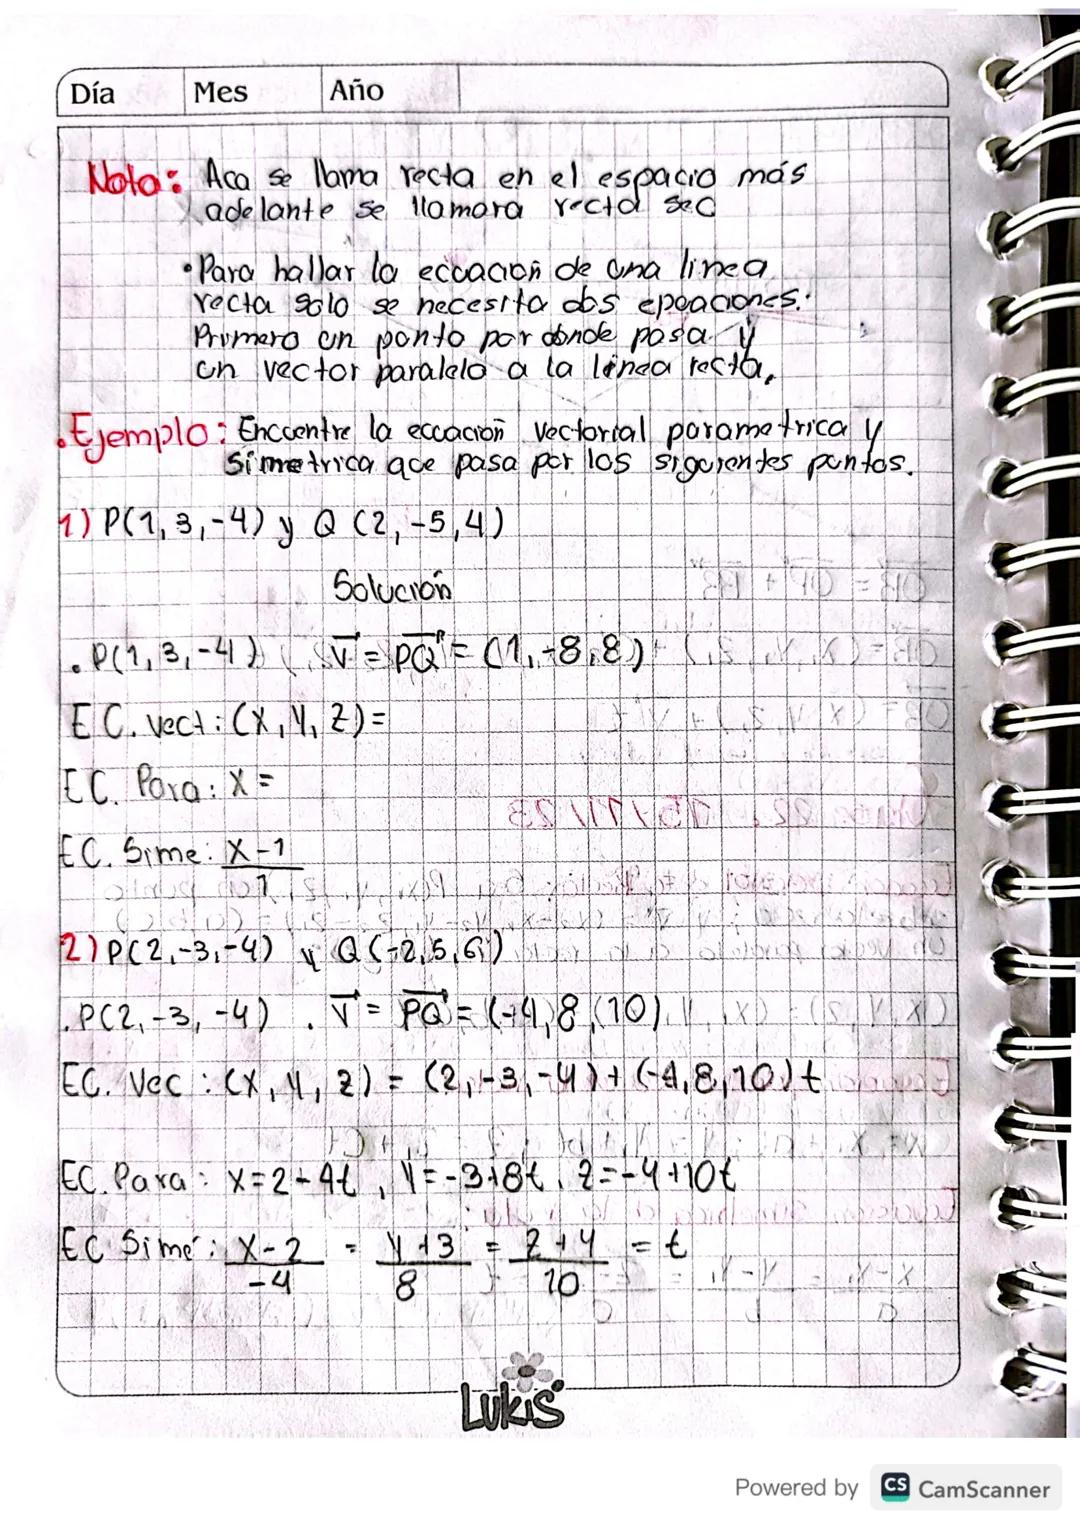 Día Mes Año
Nota: Aca se llama recta en el espacio más
adelante se llamara recta sec
•Para hallar la ecuación de una linea
recta solo se necesita dos epeaciones:
Primero un punto por donde pasa y
un vector paralelo a la línea recta.
•Ejemplo: Encuentre la eccación vectorial parametrica y
Simetrica que pasa por los siguientes puntos.
1) P(1, 3, -4) y Q (2, -5, 4)
Solución
• P(1, 3, -4) V = PQ = (1, -8, 8)
EC. Vect: (X, Y, Z) =
EC. Para: X =
EC. Sime: X-1
1
2) P(2, -3, -4) y Q(-2, 5, 6)
•P(2, -3, -4) . V = PQ = (-4, 8, 10)
EC. Vec : (X, Y, Z) = (2, -3, -4) + (-4, 8, 10) t
EC. Para: X=2-4t, Y=-3+8t, Z=-4+10t
EC Sime: X-2 = Y+3 = Z+4 = t
-4 8 10
Lukis
Powered by CS CamScanner